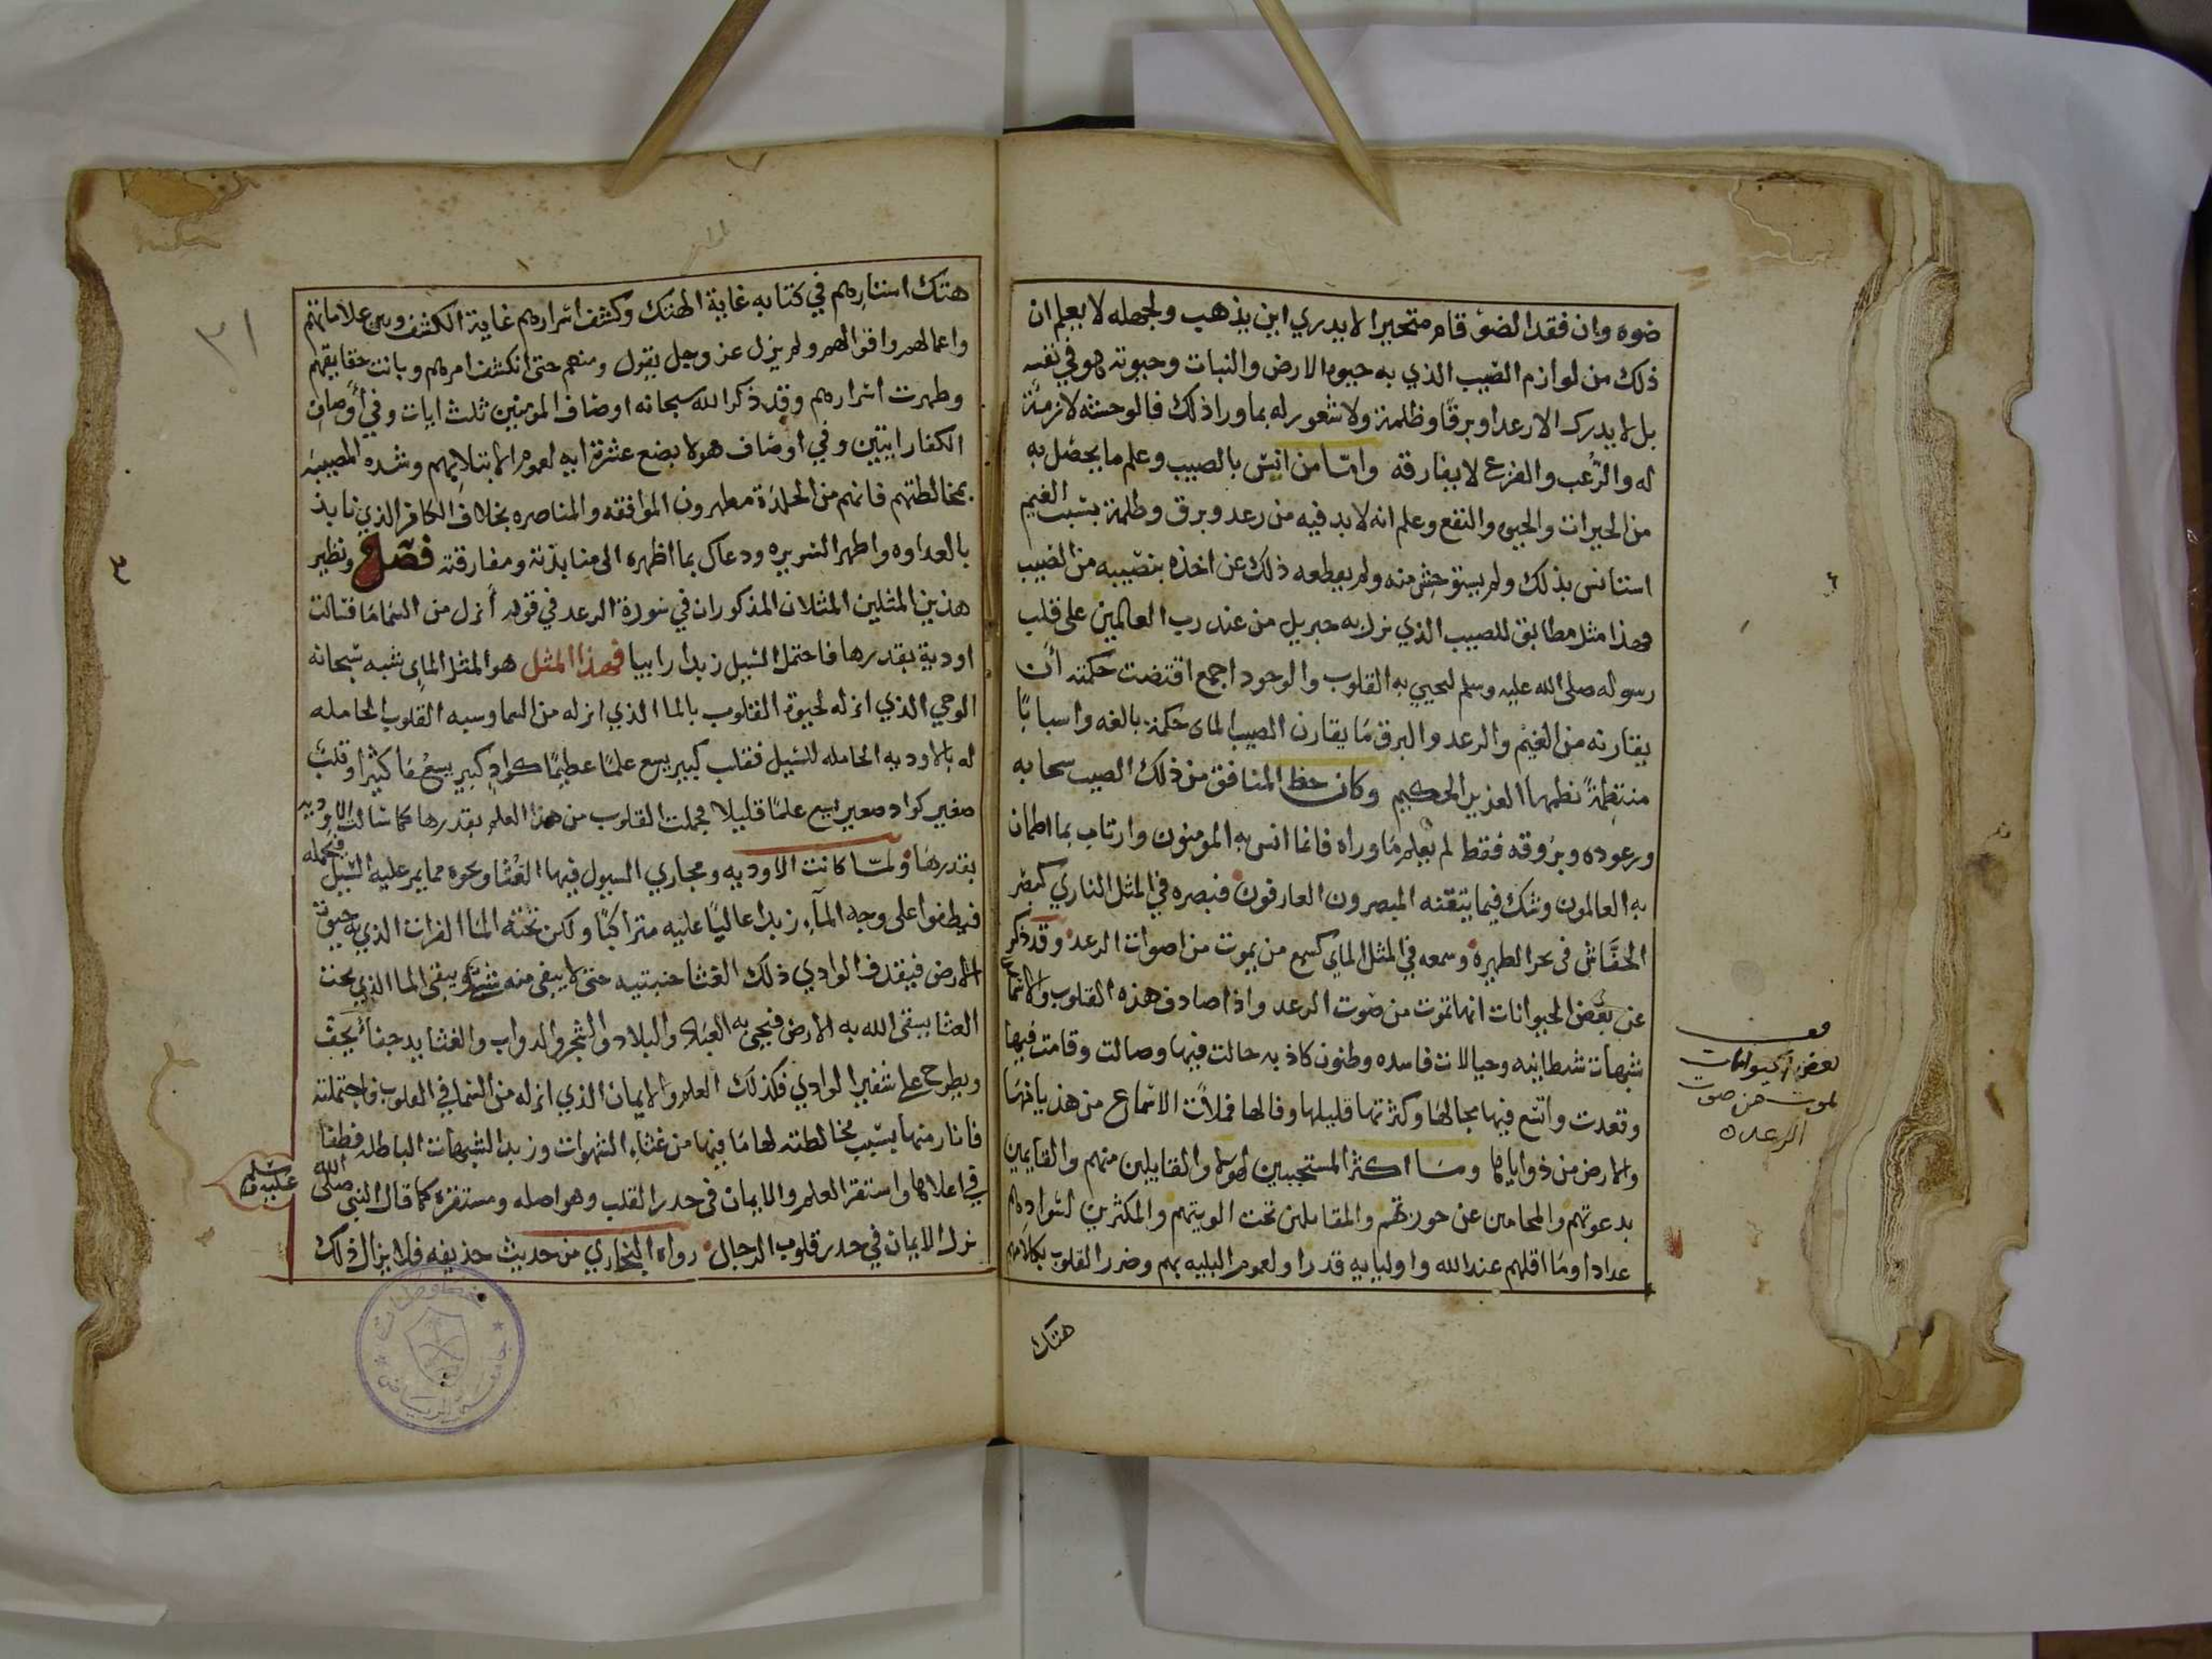 ضوه وان فقد الضوء قام متحيرا لا يدري اين يذهب ولجهله لا يعلم ان
ذلك من لوازم الصيب الذي به حيوة الارض والنبات وحيوته هو في نفسه
بل لا يدرك الا رعدا وبرقا وظلمة ولا شعور له بما ورا ذلك فالوحشه لازمة
له والرعب والفزع لا يفارقه واما من انس بالصيب وعلم ما يحصل به
من الخيرات والحيوه والنفع وعلم انه لا بد فيه من رعد وبرق وظلمة بسبب الغيم
استانس بذلك ولم يستوحش منه ولم يقطعه ذلك عن اخذه بنصيبه من الصيب
فهذا مثل مطابق للصيب الذي نزل به جبريل من عند رب العالمين على قلب
رسوله صلى الله عليه وسلم ليحيي به القلوب والوجود اجمع اقتضت حكمته أن
يقارنه من الغيم والرعد والبرق ما يقارن الصيب الماى حكمة بالغه واسبابًا
منتظمةً نظمها العزيز الحكيم وكان حظ المنافق من ذلك الصيب سحابه
ورعوده وبروقه فقط لم يعلم ما وراه فاغا انس به المومنون وارتاب بما اطمان
به العالمون وشك فيما يتقنه المبصرون العارفون فبصره في المثل الناري كبصر
الخفاش في نحر الظهيرة وسمعه في المثل الماي كسمع من يموت من اصوات الرعد وقد ذكر
عن بعض الحيوانات انها تموت من صوت الرعد واذا صادف هذه القلوب والاسماع
شبهات شيطانيه وخيالات فاسده وظنون كاذبه جالت فيها وصالت وقامت فيها
وقعدت واتسع فيها مجالها وكثر تها قليلها وقالها فملأت الاسماع من هذيانها
والارض من ذواياها وما اكثر المستجيبين لهولا والقايلين منهم والقايمين
بدعوتهم والمحامين عن حوزتهم والمقاتلين تحت الويتهم والمكثرين لسوادهم
عدادا وما اقلهم عند الله واوليايه قدرا ولعموم البليه بهم وضرر القلوب بكلامهم
هتك
قف
بعض الحيوانات
تموت من صوت
الرعد
هتك استارهم في كتابه غاية الهتك وكشف اسرارهم غاية الكشف وبين علاماتهم
واعمالهم واقوالهم ولم يزل عز وجل يقول ومنهم حتى انكشف امرهم وبانت حقايقهم
وظهرت اسرارهم وقد ذكر الله سبحانه اوصاف المومنين ثلث ايات وفي أوصاف
الكفار ايتين وفي اوصاف هولا بضع عشرة ايه لعموم الابتلا بهم وشده المصيبه
بمخالطتهم فانهم من الجلدة مظهرون الموافقه والمناصره بخلاف الكافر الذي نابذ
بالعداوه واظهر السريره ودعاك بما اظهره الى منابذته ومفارقته فصل ونظير
هذين المثلين المثلان المذكوران في سورة الرعد في قوله أنزل من السما ما فسالت
اودية بقدرها فاحتمل السيل زبدا رابيا فهذا المثل هو المثل الماي شبه سبحانه
الوحي الذي انزله لحيوة القلوب بالما الذي انزله من السما وشبه القلوب الحامله
له بالاوديه الحامله للسيل فقلب كبير يسع علمًا عظيمًا كوادٍ كبير يسع ما كثيرا وقلب
صغير كواد صغير يسع علمًا قليلا فحملت القلوب من هذا العلم بقدرها كما سالت الاوديه
بقدرها ولما كانت الاوديه ومجاري السيول فيها الغثا ونحوه مما يمر عليه السيل فيحمله
فيطفوا على وجه المآء زبدا عاليًا عليه متراكبًا ولكن تحته الما الفرات الذي به حيوة
الارض فيقذف الوادي ذلك الغثا جنبتيه حتى لا يبقى منه شي ويبقى الما الذي تحت
الغثا يسقى الله به الارض فيحي به العباد والبلاد والشجر والدواب والغثا يذهب جفآء يجف
ويطرح على شفير الوادي فكذلك العلم والايمان الذي انزله من السما في القلوب فاحتملته
فاثار منها بسبب مخالطته لها ما فيها من غثاء الشهوات وزبد الشبهات الباطله فطفا
في اعلاها واستقر العلم والايمان في جذر القلب وهو اصله ومستقره كما قال النبي صلى الله
عليه وسلم
نزل الايمان في جذر قلوب الرجال رواه البخاري من حديث حذيفه فلا يزال ذلك
٣١
٣